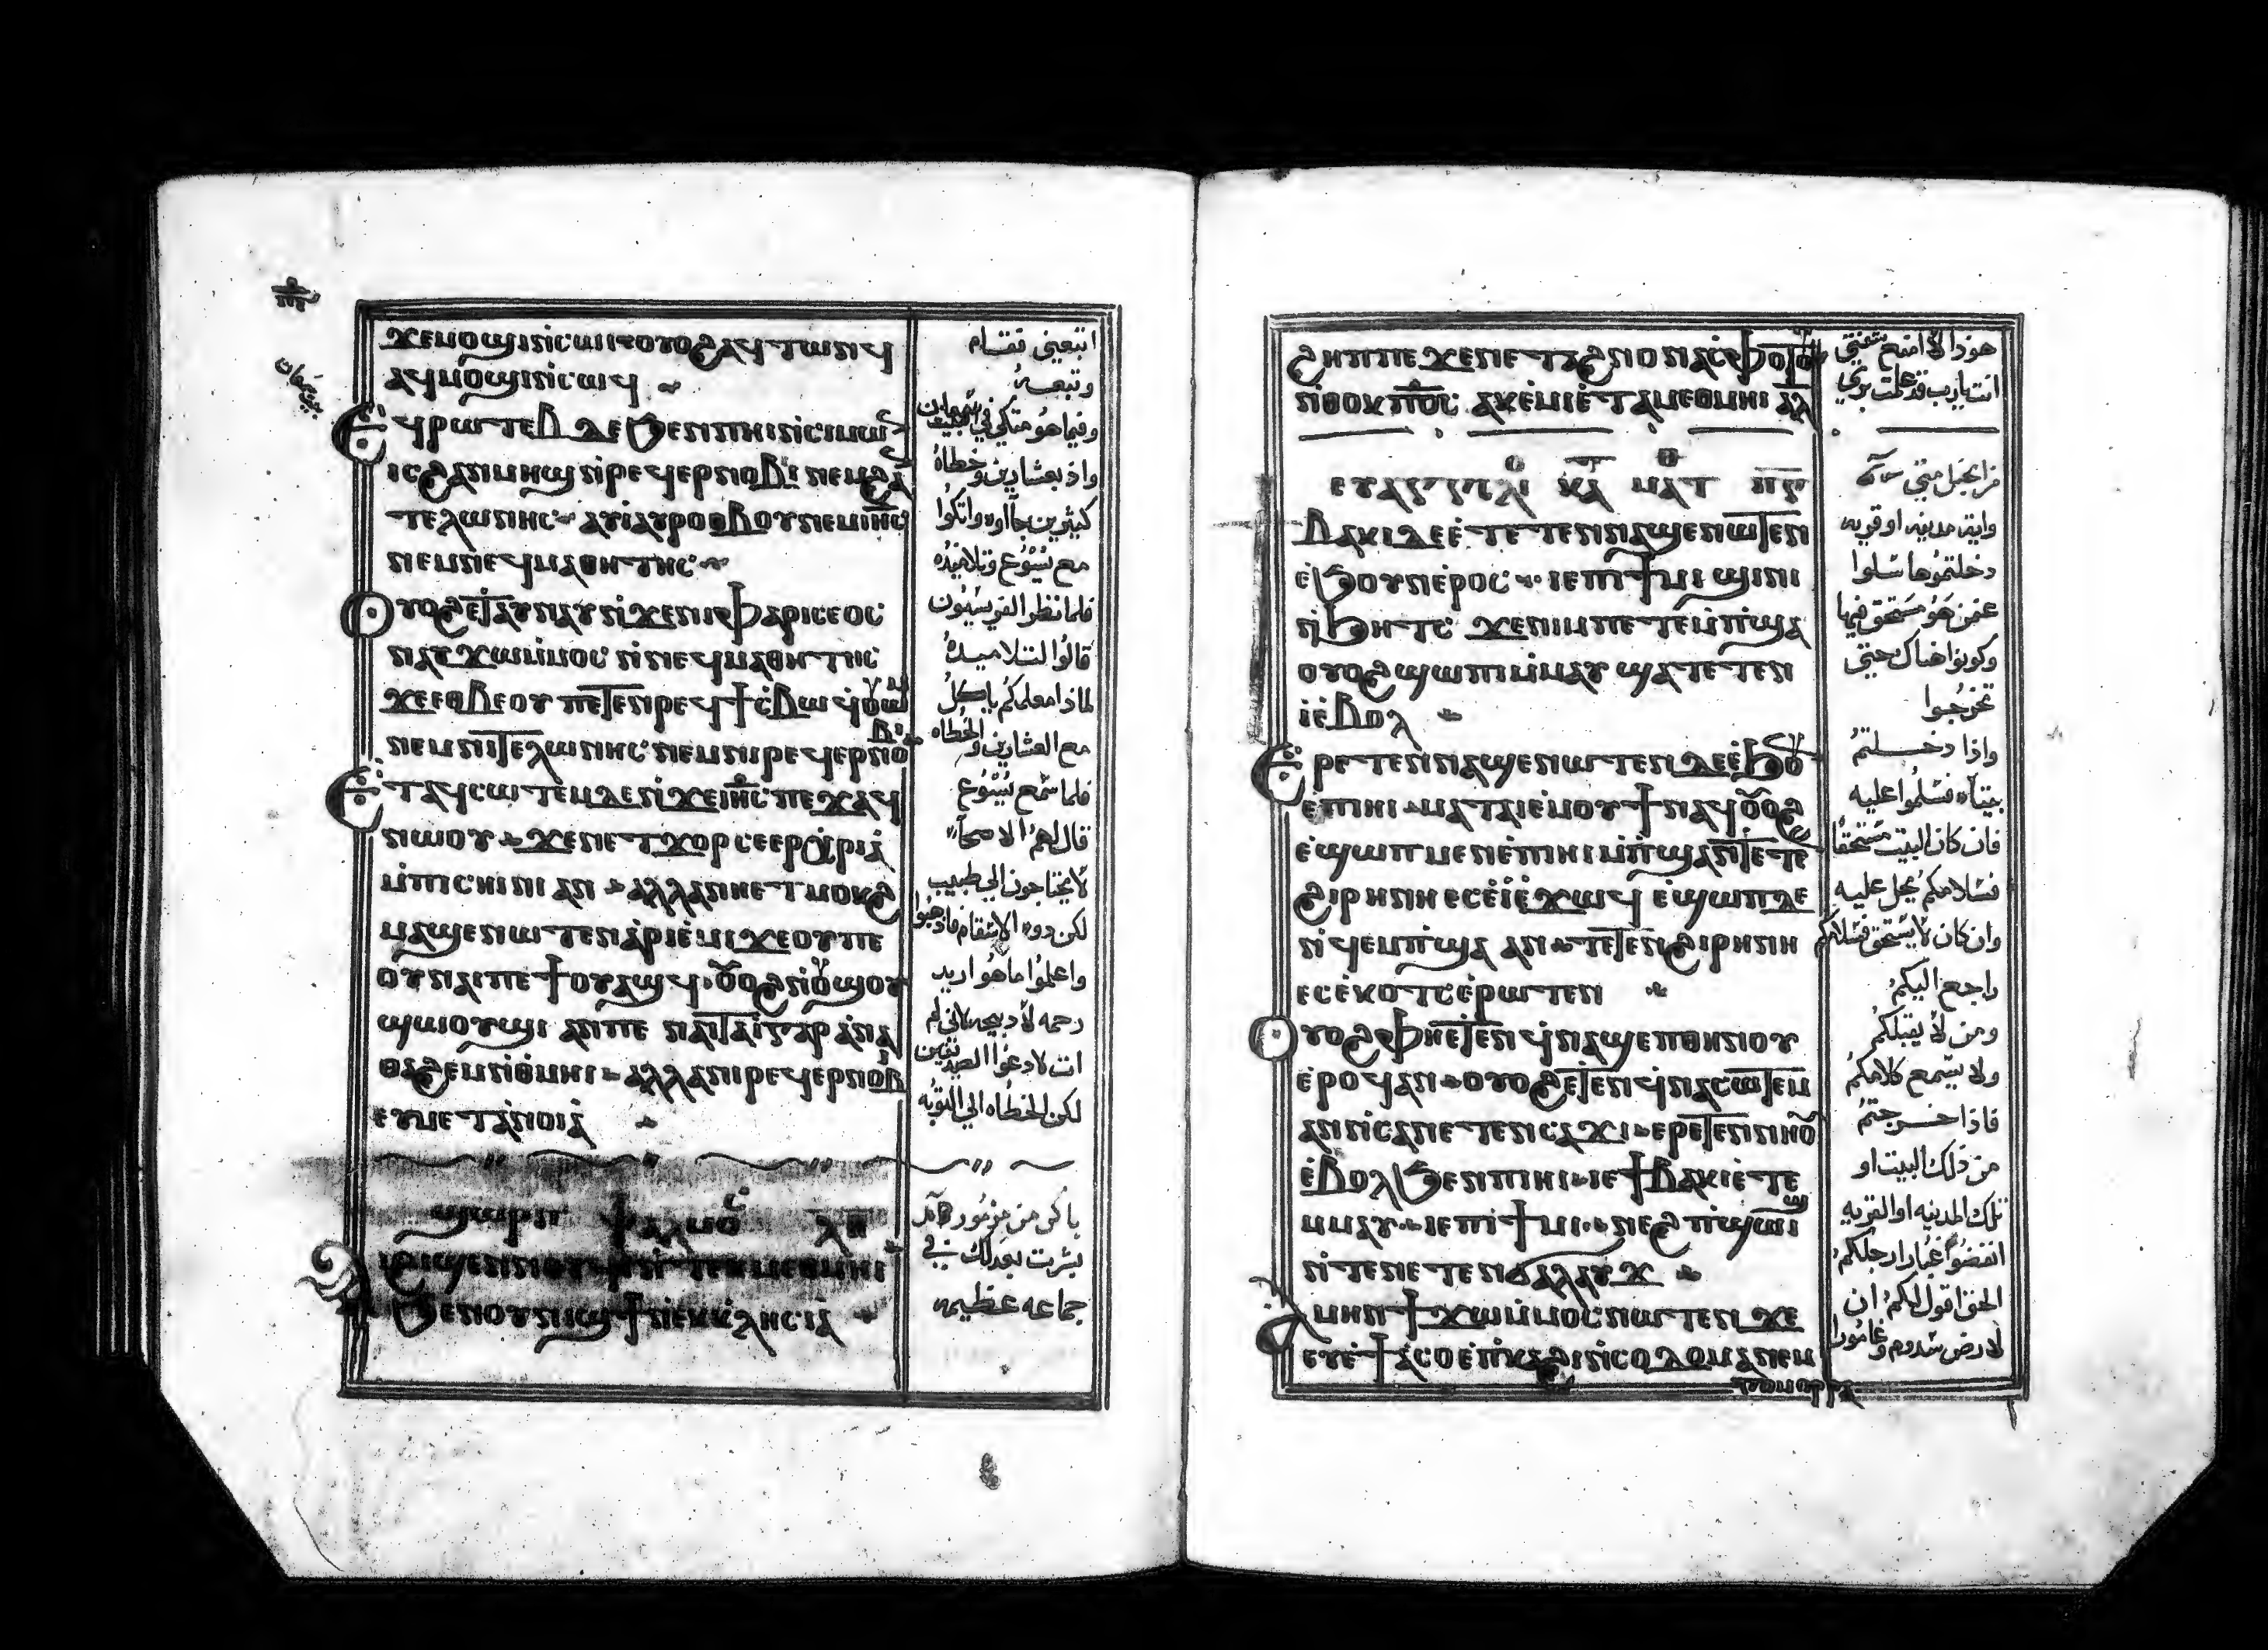 ϫⲉⲙⲟϣⲓⲛ̀ⲥⲱⲓ ⲟⲩⲟϩⲁϥⲧⲱⲛϥ
ⲁϥⲙⲟϣⲓⲛ̀ⲥⲱϥ
Ⲉϥⲣⲱⲧⲉⲃ ⲇⲉ ϧⲉⲛⲡⲏⲓⲛ̀ⲥⲓⲙⲱ
ⲓⲥϩⲁⲛⲙⲏϣ ⲛ̀ⲣⲉϥⲉⲣⲛⲟⲃⲓ ⲛⲉⲙϩⲁ
ⲧⲉⲗⲱⲛⲏⲥ ⲁⲩⲓ̀ⲁⲩⲣⲟⲑⲃⲟⲩⲛⲉⲙⲓⲏ̅ⲥ
ⲛⲉⲙⲛⲉϥⲙⲁⲑⲏⲧⲏⲥ
Ⲟⲩⲟϩⲉⲧⲁⲩⲛⲁⲩ ⲛ̀ϫⲉⲛⲓⲫⲁⲣⲓⲥⲉⲟⲥ
ⲛⲁⲩϫⲱⲙ̀ⲙⲟⲥ ⲛ̀ⲛⲉϥⲙⲁⲑⲏⲧⲏⲥ
ϫⲉⲉⲑⲃⲉⲟⲩ ⲡⲉⲧⲉⲛⲣⲉϥϯⲥ̀ⲃⲱ ϥ̀ⲟⲩⲱⲙ
ⲛⲉⲙⲛⲓⲧⲉⲗⲱⲛⲏⲥ ⲛⲉⲙⲛⲓⲣⲉϥⲉⲣⲛⲟⲃⲓ
Ⲉⲧⲁϥⲥⲱⲧⲉⲙⲇⲉⲛ̀ϫⲉⲓⲏ̅ⲥ ⲡⲉϫⲁϥ
ⲛⲱⲟⲩ ϫⲉⲛⲉⲧϫⲟⲣ ⲥⲉⲉⲣⲭⲣⲓⲁ
ⲙ̀ⲡⲓⲥⲏⲓⲛⲓ ⲁⲛ ⲁⲗⲗⲁⲛⲏⲉⲧⲙⲟⲕϩ
ⲙⲁϣⲉⲛⲱⲧⲉⲛ ⲁⲣⲓⲉ̀ⲙⲓ ϫⲉⲟⲩⲡⲉ
ⲟⲩⲛⲁⲓⲡⲉ ϯⲟⲩⲁϣϥ ⲟⲩⲟϩⲛ̀ⲟⲩϣⲟⲩ
ϣⲱⲟⲩϣⲓ ⲁⲛⲡⲉ ⲛⲁⲓⲧⲁⲓ̀ⲅⲁⲣ ⲁⲛⲁ
ⲑⲁϩⲉⲙⲛⲓⲑ̀ⲙⲏⲓ ⲁⲗⲗⲁⲛⲓⲣⲉϥⲉⲣⲛⲟⲃⲓ
ⲉⲩⲙⲉⲧⲁⲛⲟⲓⲁ
ϣⲱⲣⲡ ⲯⲁⲗⲙⲟⲥ ⲗⲑ
ⲁⲓϩⲓϣⲉⲛⲛⲟⲩϥⲓ ⲛ̀ⲧⲉⲕⲙⲉⲑⲙⲏⲓ
ϧⲉⲛⲟⲩⲛⲓϣϯ ⲛ̀ⲉⲕⲕⲗⲏⲥⲓⲁ
اتبعني فقام
وتبعه
وفيما هو متكي في بيت سمعان
واذ بعشارين وخطاه
كثيرين جآاوه واتكوا
مع يسوع وتلاميذه
فلما نظروا الفريسيون
قالوا لتلاميذه
لماذا معلمكم ياكل
مع العشارين والخطاه
فلما سمع يسوع
قال لهم الاصحآ
لا يحتاجون الي طبيب
لكن ذوه الاسقام فاذهبوا
واعلموا ما هو اريد
رحمه لا ذبيحه لاني لم
ات لادعوا الصديقين
لكن الخطاه الي التوبه
باكر من مزمور
بشرت بعدلك في
جماعه عظيمه
ϩⲏⲡⲡⲉ ϫⲉⲛⲉ ⲧⲁϩⲛⲟ ⲛⲛⲁⲥⲫⲟⲧⲟⲩ
ⲛ̀ⲑⲟⲕⲡϭⲟⲓⲥ ⲁⲕⲉⲙⲓⲉ̀ⲧⲁⲙⲉⲑⲙⲏⲓ ⲁⲗ
ⲉⲩⲁⲅⲅⲉⲗⲓ ⲕⲁ ⲙⲁⲧ
ⲃⲁⲕⲓⲇⲉⲉ̀ⲧⲉⲧⲉⲛⲛⲁϣⲉⲛⲱⲧⲉⲛ
ⲉ̀ϧⲟⲩⲛⲉ̀ⲣⲟⲥ ⲓⲉⲡⲓϯⲙⲓ ϣⲓⲛⲓ
ⲛ̀ϧⲏⲧⲥ ϫⲉⲛⲓⲙⲡⲉⲧⲉⲙⲡ̀ϣⲁ
ⲟⲩⲟϩϣⲱⲡⲓⲙ̀ⲙⲁⲩ ϣⲁⲧⲉⲧⲉⲛ
ⲓ̀ⲉ̀ⲃⲟⲗ
Ⲉⲣⲉⲧⲉⲛⲛⲁϣⲉⲛⲱⲧⲉⲛ ⲇⲉⲉ̀ϧⲟⲩ
ⲉ̀ⲡⲓⲏⲓ ⲙⲁⲧⲁⲓⲉ̀ⲙⲟⲩϯⲛⲁϥ ⲟⲩⲟϩ
ⲉ̀ϣⲱⲡ ⲙⲉⲛⲉ̀ⲡⲓⲏⲓ ⲙ̀ⲡϣⲁⲛ̀ⲧⲉⲧⲉ
ϩⲓⲣⲏⲛⲏ ⲉⲥⲉ̀ⲓ̀ⲉ̀ϫⲱϥ ⲉϣⲱⲡⲇⲉ
ⲛ̀ϥⲉⲙⲡ̀ϣⲁ ⲁⲛ ⲧⲉⲧⲉⲛϩⲓⲣⲏⲛⲏ
ⲉⲥⲉ̀ⲕⲟⲧⲥⲉ̀ⲣⲱⲧⲉⲛ
Ⲟⲩⲟϩⲫⲏⲉⲧⲉⲛϥ̀ⲛⲁϣⲉⲡⲑⲏⲛⲟⲩ
ⲉ̀ⲣⲟϥⲁⲛ ⲟⲩⲟϩⲉⲧⲉⲛϥ̀ⲛⲁⲥⲱⲧⲉⲙ
ⲁⲛⲛ̀ⲥⲁⲛⲉⲧⲉⲛⲥⲁϫⲓ ⲉⲣⲉⲧⲉⲛⲛⲏⲟⲩ
ⲉ̀ⲃⲟⲗϧⲉⲛⲡⲓⲏⲓ ⲓⲉϯⲃⲁⲕⲓⲉ̀ⲧⲉ
ⲙⲙⲁⲩ ⲓⲉⲡⲓϯⲙⲓ ⲛⲉϩⲡ̀ϣⲱⲓϣ
ⲛ̀ⲧⲉⲛⲉⲧⲉⲛϭⲁⲗⲁⲩϫ
Ⲁⲙⲏⲛ ϯϫⲱⲙ̀ⲙⲟⲥ ⲛⲱⲧⲉⲛ ϫⲉ
ⲉⲩⲉ̀ϯⲁⲥⲟⲉ̀ⲡⲕⲁϩⲓⲛ̀ⲥⲟⲇⲟⲙⲁⲛⲉⲙ
هوذا لا امنع شفتي
انت يارب قد علمت بري
من انجيل متي
وايه مدينه او قريه
دخلتموها سلوا
عمن هو مستحق فيها
وكونوا هناك حتي
تخرجوا
واذا دخلتم
بيتاه فسلموا عليه
فان كان البيت مستحقا
فسلامكم يحل عليه
وان كان لا يستحق فسلامكم
راجع اليكم
ومن لا يقبلكم
ولا يسمع كلامكم
فاذا خرجتم
من ذلك البيت او
تلك المدينه او القريه
انفضوا غبار ارجلكم
الحق اقول لكم ان
لارض سدوم وغامورا